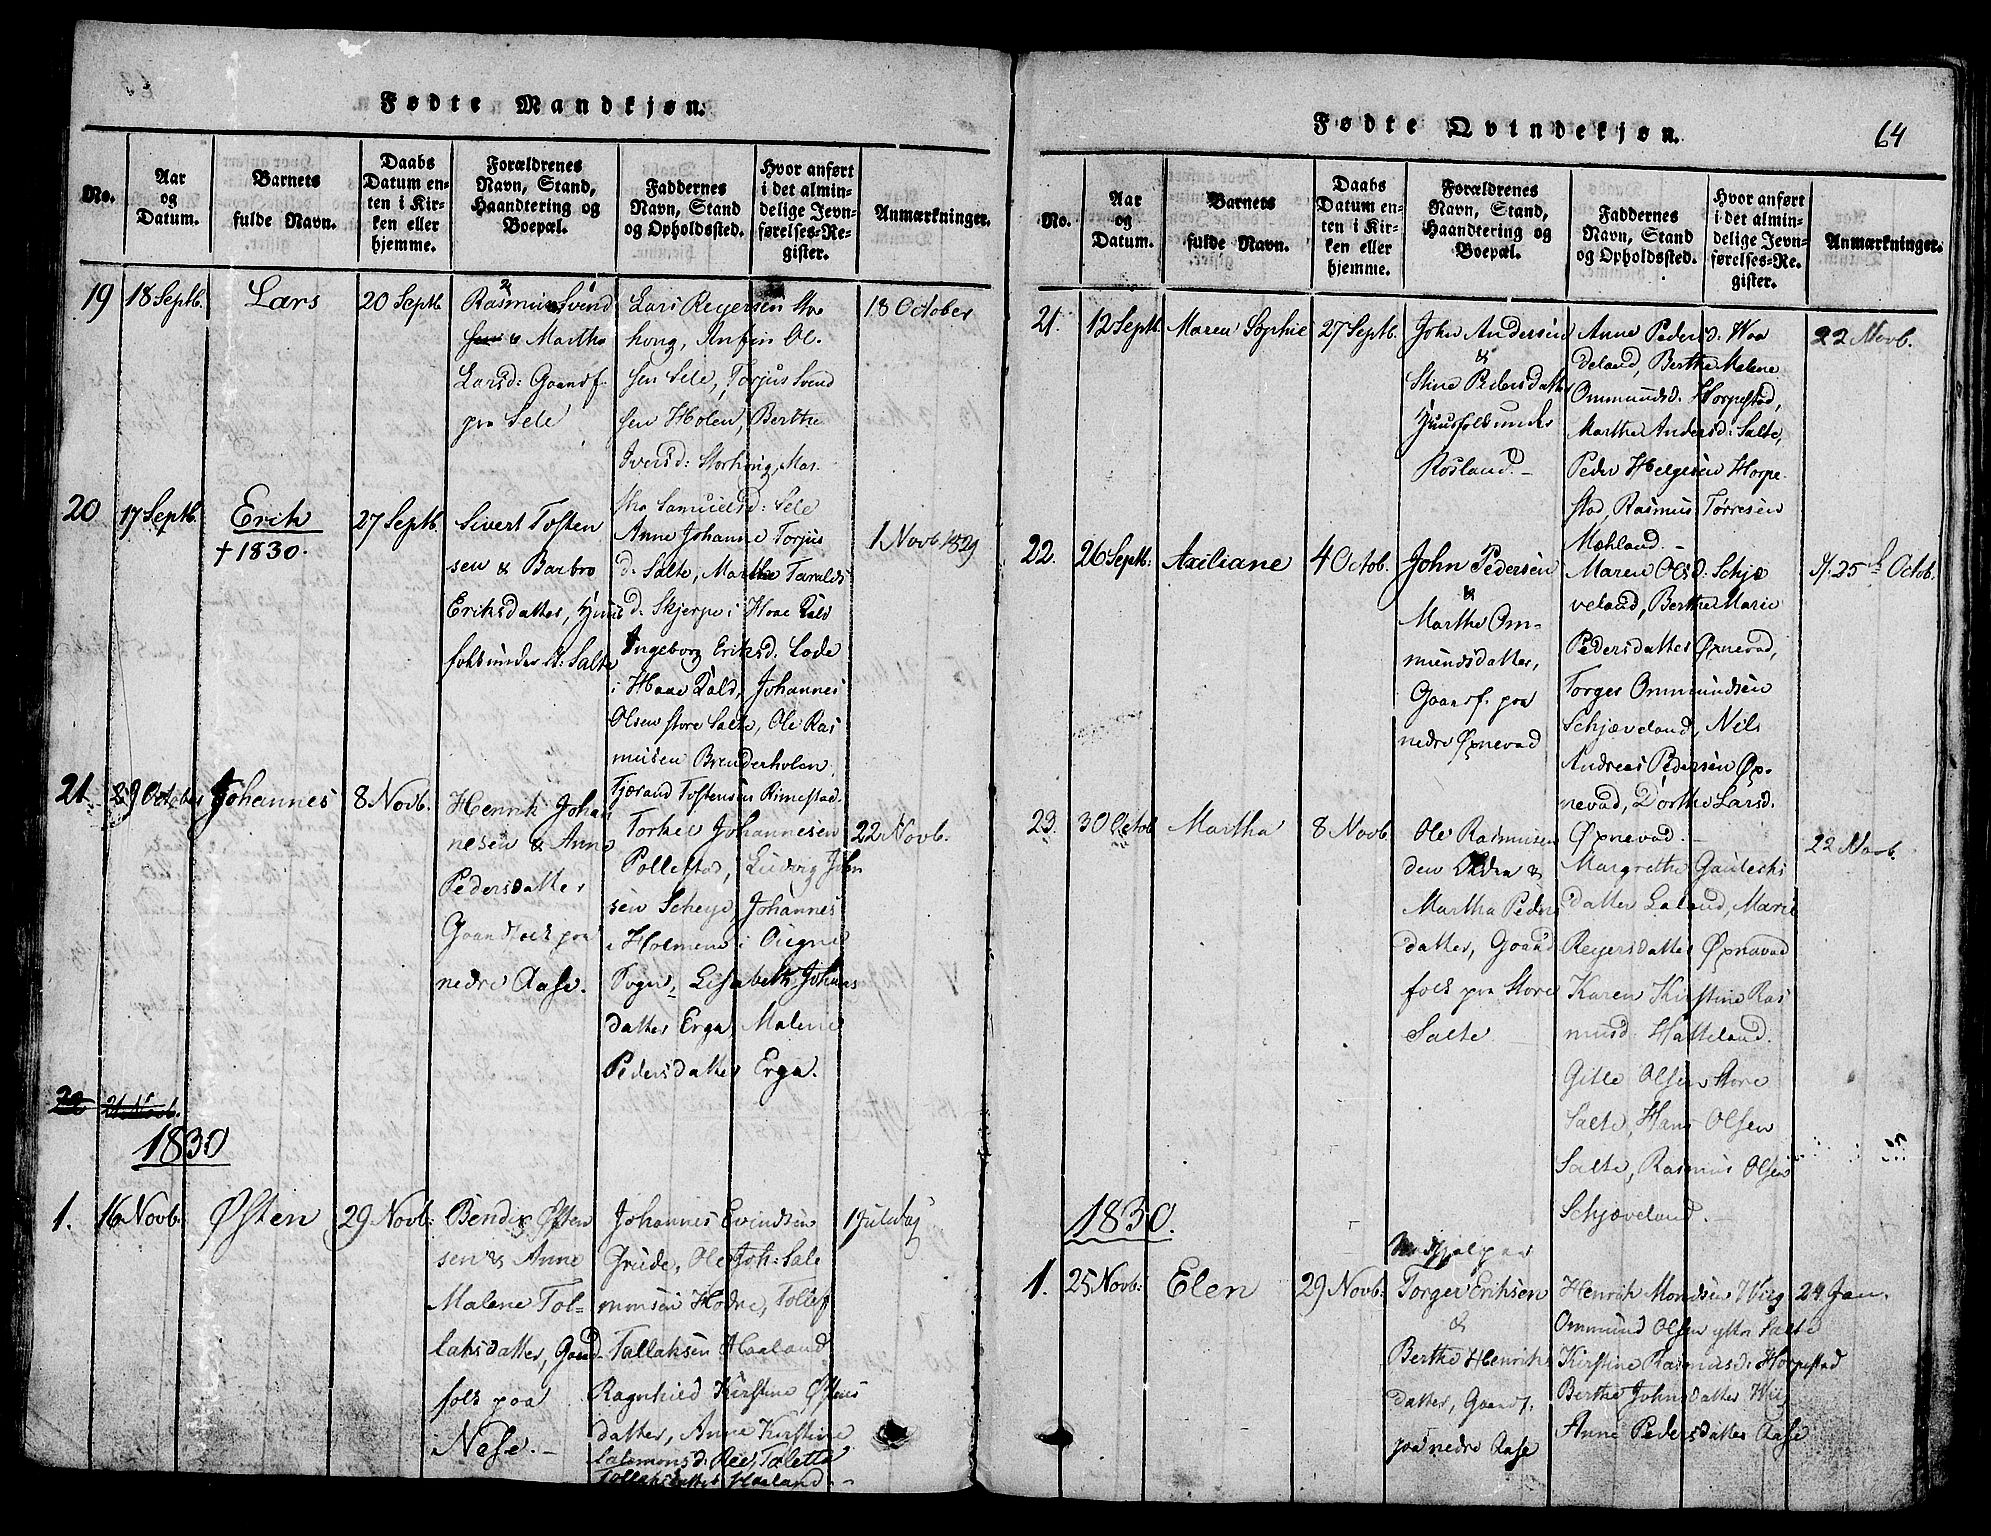 Fødte Mandkjøn.
No.
Aar
og
Datum.
Barnets
fulde Navn.
Daabs
Datum en-
ten i Kir-
ken eller
hjemme.
Forældrenes
Navn, Stand,
Haandtering og
Boepæl.
Faddernes
Navn, Stand
og Opholdssted.
Hvor anført
i det almin-
delige Jevn-
førelses-Re-
gister.
Anmærkninger.
19
18 Septb.
Lars
20 Septb
Rasmus Svend
sen & Martha
Larsd: Gaardf.
paa Sele
Lars Reyersen Stor
hong, Anfin Ol-
sen Sele, Torjus Svend
sen Holen, Berthe
Iversd: Storhong, Mar-
tha Samuelsd: Sele
18 October
20
17 Septb.
Erik
+ 1830.
27 Septb.
Sivert Tosten
sen & Barbro
Eriksdatter, Huus
folk under St: Salte
Anne Johanne Torjus
d: Salte, Marthe Taralds
d: Skjerpe i Haae Tald
Ingeborg Eriksd: Lode
i Haae Tald, Johannes
Olsen store Salte, Ole Ras
musen Brenderholen.
Tjærand Tostensen Rimestad.
1 Novb. 1829
21.
29 October
Johannes
8 Novb.
Henrik Johan
nesen & Anne
Pedersdatter
Gaardfolk paa
nedre Aase.
Torkel Johannesen
Pollestad, Ludvig John
sen Scheye, Johannes
Holmene i Ougne
Sogn, Lisabeth Johans
datter Erga, Malene
Pedersdatter Erga.
22 Novb.
22
21 Novb.
1830
1.
16 Novb.
Østen
29 Novb:
Bendix Østen
sen & Anne
Malene Tol-
laksdatter, Gaard-
folk paa
Nese. -
Johannes Evindsen
Grude, Ole Joh: Sale
Hodne, Tollef
Tallaksen Haaland
Ragnhild Kirstine Østens
datter, Anne Kirstine
Salomonsd: Ree, Taletta
Tollaksdatter Haaland -
1 Juledag
Fødte Qvindekjøn.
64
No.
Aar
og
Datum.
Barnets
fulde Navn.
Daabs
Datum en-
ten i Kir-
ken eller
hjemme.
Forældrenes
Navn, Stand,
Haandtering og
Boepæl.
Faddernes
Navn, Stand
og Opholdssted.
Hvor anført
i det almin-
delige Jevn-
førelses-Re-
gister.
Anmærkninger.
21.
12 Septb.
Maren Sophie
27 Septb.
John Andersen
&
Stine Pedersdatter
Huusfolk under
Rosland. -
Anne Pedersd: Waa
deland, Berthe Malene
Ommundsd: Horpestad,
Marthe Andersd: Salte,
Peder Helgesen Horpe-
stad, Rasmus Tørresen
Mæhland. -
22 Novb.
22.
26 Septb:
Axeliane
4 Octob.
John Pedersen
&
Marthe Om-
mundsdatter,
Gaardf. paa
nedre Øxnevad
Maren Olsd: Schjæ
veland, Berthe Marie
Pedersdatter Øxnevad,
Torger Ommundsen
Schjæveland, Nils
Andreas Pedersen Øx-
nevad, Dorthe Larsd.
Øxnevad. -
25 Octob.
23.
30 Octob
Martha
8 Novb.
Ole Rasmusen
den Ældre &
Martha Peders
datter, Gaard
folk paa Store
Salte
Margrethe Gautechs
datter Laland, Marie
Reyersdatter Øxnevad
Karen Kirstine Ras
musd: Hatteland.
Gitle Olsen Store
Salte, Hans Olsen
Salte, Rasmus Olsen
Schjæveland. -
22 Novb.
1830.
1.
25 Novb:
Elen
29 Novb:
Torger Eriksen
&
Berthe Henriks
datter, Gaardf.
paa nedre Aase
Henrik Mondsen Wiig
Ommund Olsen yttre Salte
Kirstine Rasmusd: Horpestad
Berthe Johnsdatter Wiig
Anne Pedersdatter Aase
24 Jan.